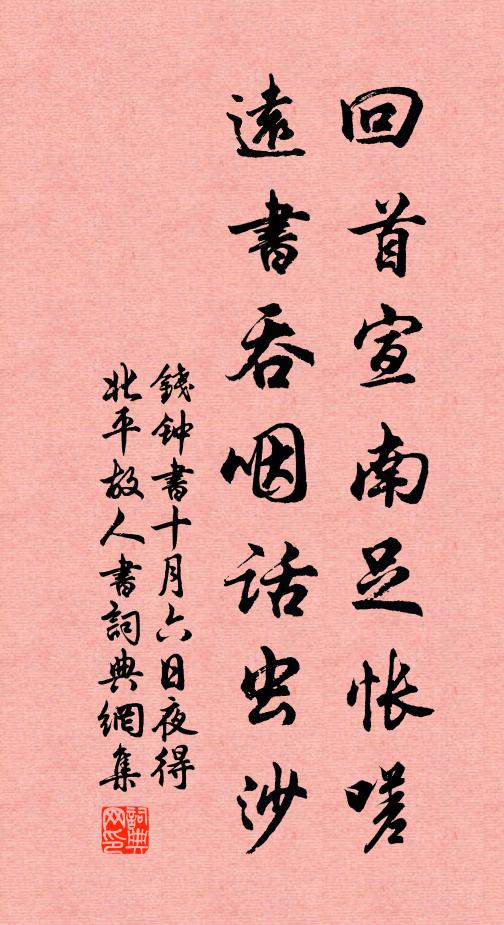 回首宣南足怅嗟
遠書吞咽話虫沙
錢钟書十月六日夜得
北平故人書詞典網集
詞典网印